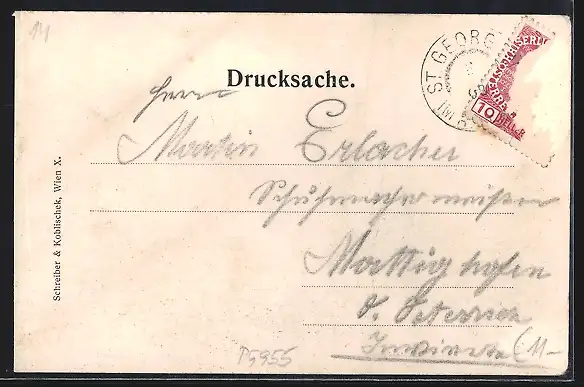 14
ST GEORG
IM
10 HELLER
Drucksache.
Herrn
Martin Erlacher
Schuhmachermeister
Mattighofen
Schreiber & Koblischek, Wien X.
P5955
11-